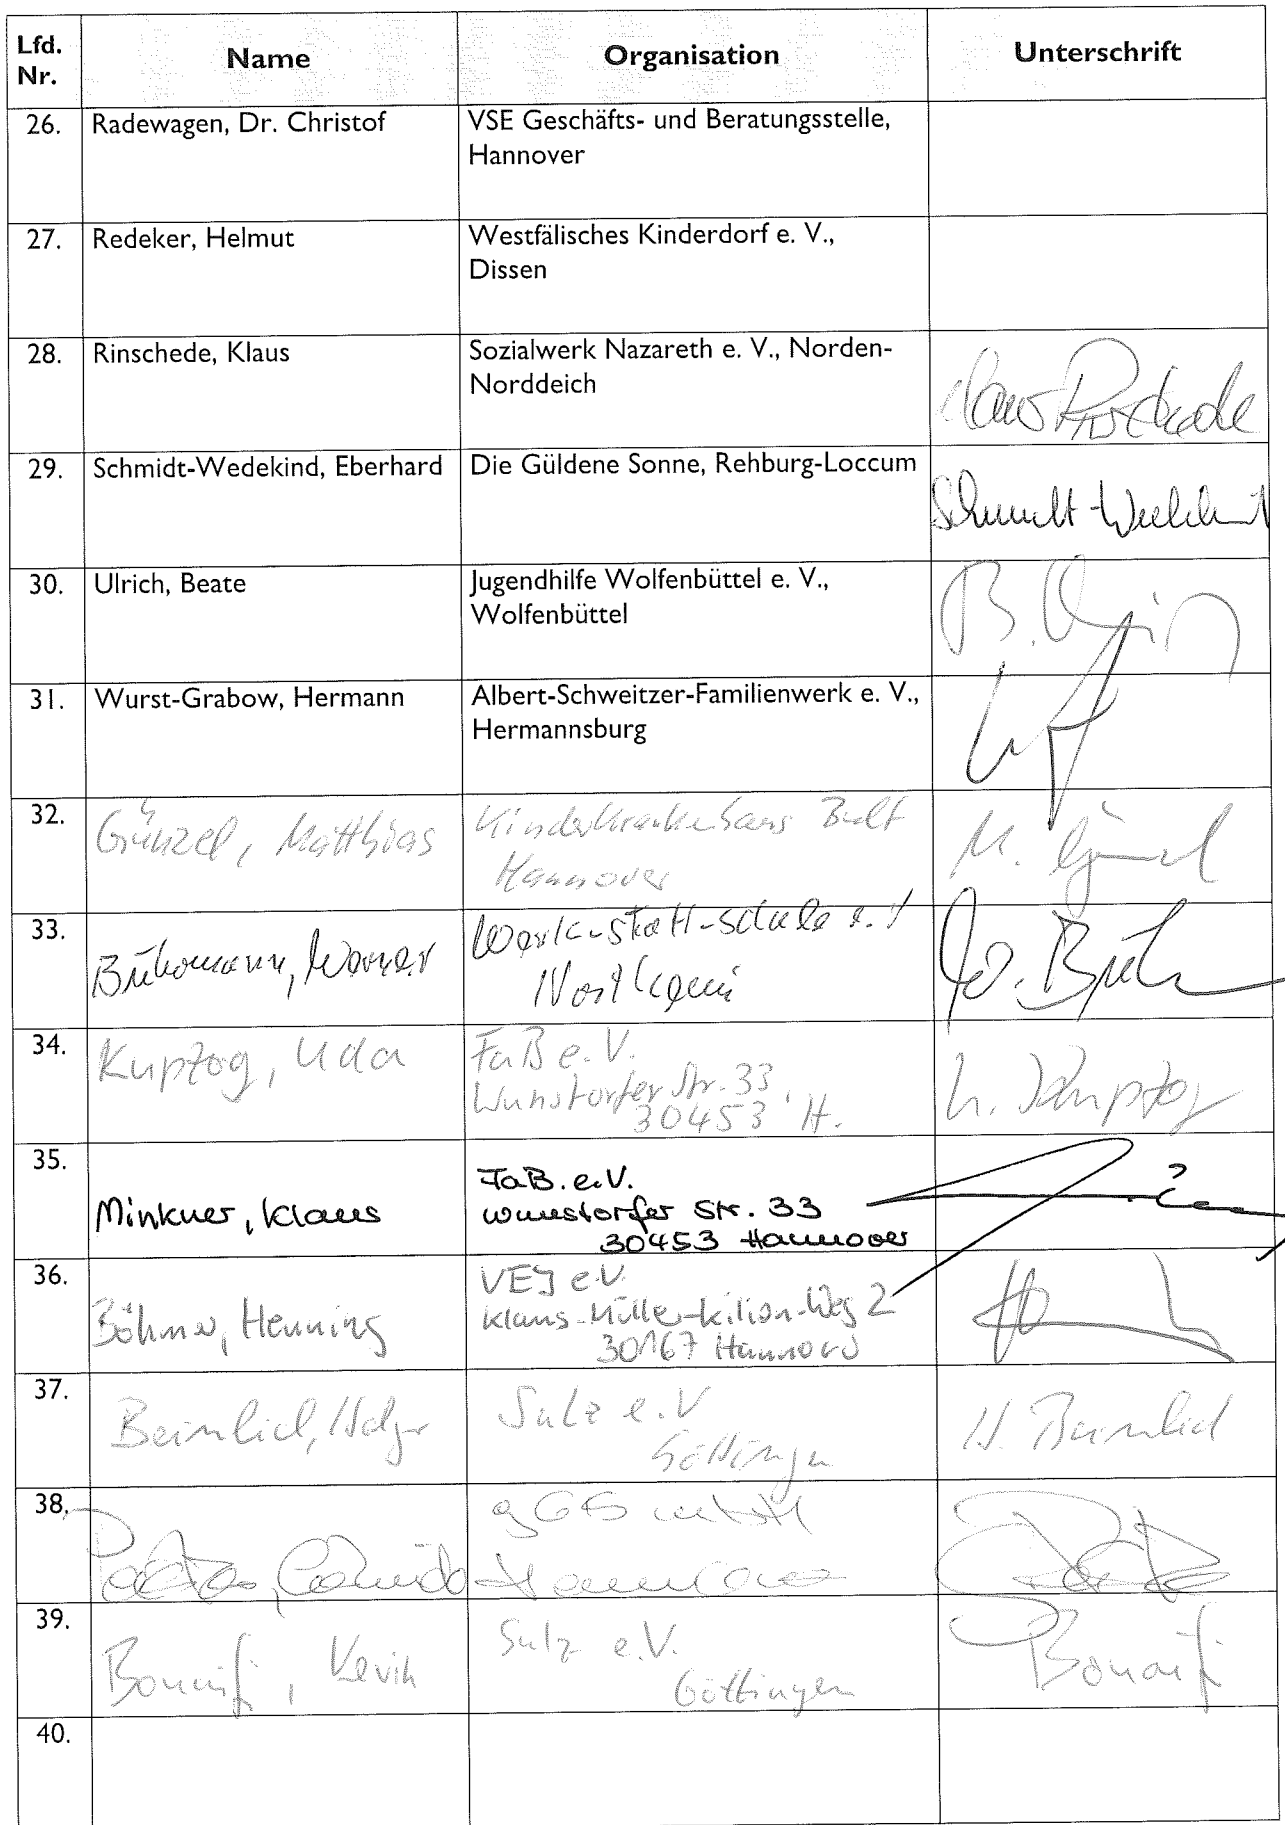 Lfd. Nr. Name Organisation Unterschrift
26. Radewagen, Dr. Christof VSE Geschäfts- und Beratungsstelle,
Hannover
27. Redeker, Helmut Westfälisches Kinderdorf e. V.,
Dissen
28. Rinschede, Klaus Sozialwerk Nazareth e. V., Norden-
Norddeich
29. Schmidt-Wedekind, Eberhard Die Güldene Sonne, Rehburg-Loccum
Schmidt-Wedekind
30. Ulrich, Beate Jugendhilfe Wolfenbüttel e. V.,
Wolfenbüttel
31. Wurst-Grabow, Hermann Albert-Schweitzer-Familienwerk e. V.,
Hermannsburg
32. Günzel, Matthias Kinderkrankenhaus Bult
Hannover
M. Günzel
33. Werner Werk-statt-schule e.V
Northeim
34. Kuptog, Uda FaB e.V.
Wunstorfer Str. 33,
30453 H.
U. Kuptog
35. Minkner, Klaus FaB. e.V.
Wunstorfer Str. 33
30453 Hannover
36. Böhmer, Henning VEJ e.V.
Klaus-Müller-Kilian-Weg 2
30167 Hannover
37. Beinlich, Holger Sulz e.V
Göttingen
H. Beinlich
38. Hannover
39. Kevin Sulz e.V.
Göttingen
40.